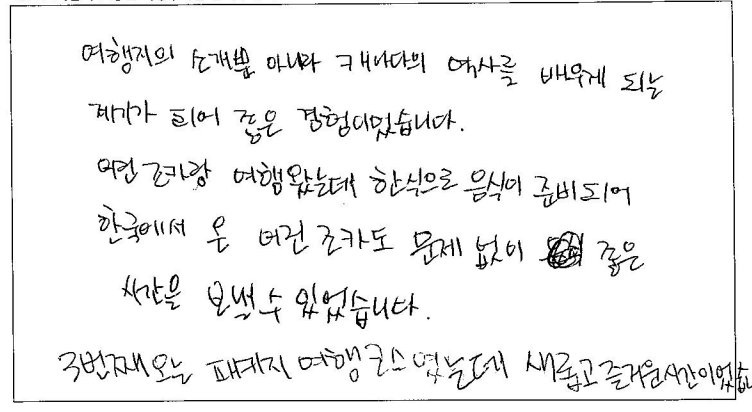 여행지의 소개뿐 아니라 캐나다의 역사를 배우게 되는
계기가 되어 좋은 경험이었습니다.
어린 조카랑 여행왔는데 한식으로 음식이 준비되어
한국에서 온 어린 조카도 문제 없이 좋은
시간을 보낼 수 있었습니다.
3번째 오는 패키지 여행코스였는데 새롭고 즐거운시간이었습